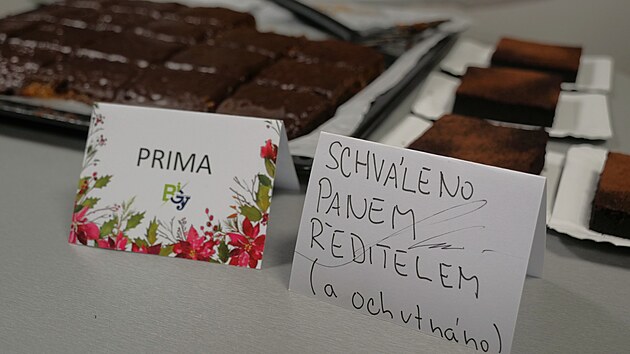 PRIMA
SCHVÁLENO
PANEM
ŘEDITELEM
(a ochutnáno)